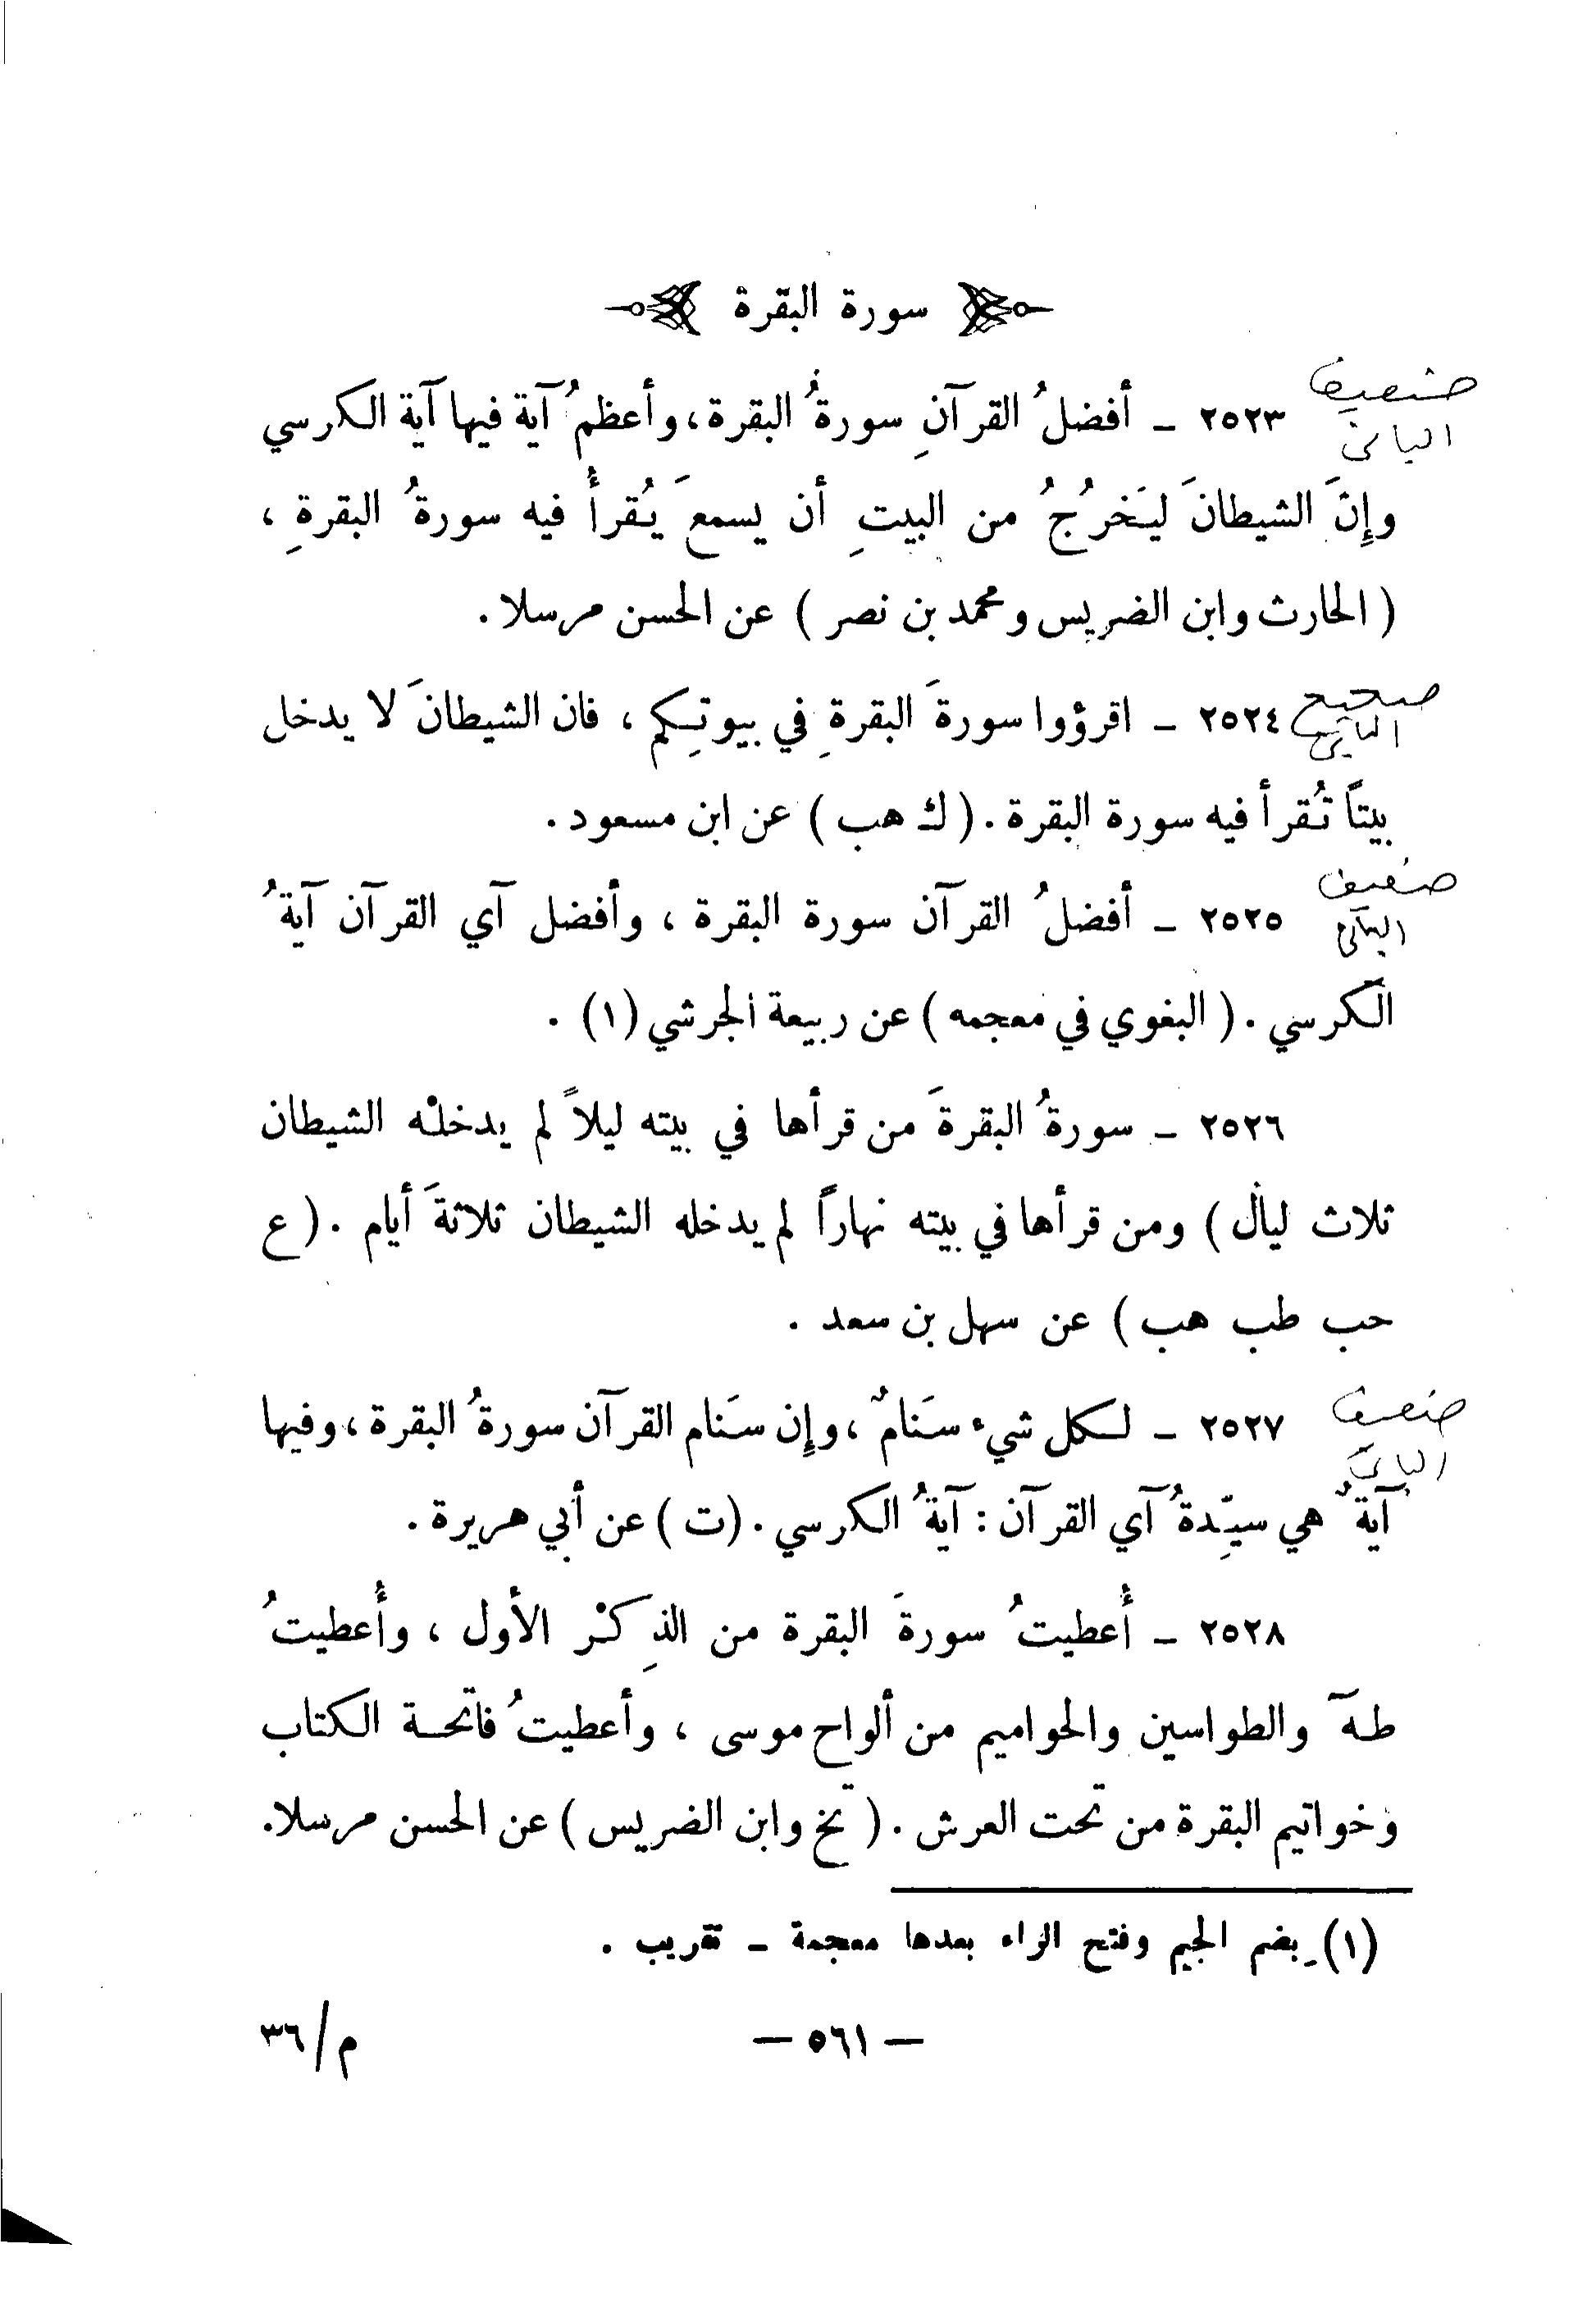 سورة البقرة
ضعيف
٢٥٢٣ - أفضلُ القرآنِ سورةُ البقرة، وأعظمُ آية فيها آية الكرسي
البانى
وإِنَّ الشيطانَ ليَخرُجُ من البيتِ أن يسمعَ يُقرأُ فيه سورةُ البقرةِ ،
( الحارث وابن الضريس ومحمد بن نصر ) عن الحسن مرسلا .
صحيح
٢٥٢٤ - اقرؤوا سورةَ البقرةِ في بيوتِكم ، فان الشيطانَ لا يدخل
البانى
بيتاً تُقرأ فيه سورة البقرة . ( ك هب ) عن ابن مسعود .
ضعيف
٢٥٢٥ - أفضلُ القرآن سورة البقرة ، وأفضل آي القرآن آيةُ
البانى
الكرسي . ( البغوي في معجمه ) عن ربيعة الجرشي (١) .
٢٥٢٦ - سورةُ البقرةَ من قرأها في بيته ليلاً لم يدخلْه الشيطان
ثلاث ليال ) ومن قرأها في بيته نهاراً لم يدخله الشيطان ثلاثةَ أيام . ( ع
حب طب هب ) عن سهل بن سعد .
ضعيف
٢٥٢٧ - لكل شيء سَنامٌ ، وإِن سَنام القرآن سورةُ البقرة ، وفيها
البانى
آيةٌ هي سيِّدةُ آي القرآن : آيةُ الكرسي . (ت ) عن أبي هريرة .
٢٥٢٨ - أُعطيتُ سورةَ البقرة من الذِكْر الأول ، وأُعطيتُ
طهَ والطواسين والحواميم من ألواح موسى ، وأعطيتُ فاتحة الكتاب
وخواتيم البقرة من تحت العرش . ( تخ وابن الضريس ) عن الحسن مرسلا.
(١) بضم الجيم وفتح الراء بعدها معجمة - تقريب .
- ٥٦١ -
م/٣٦